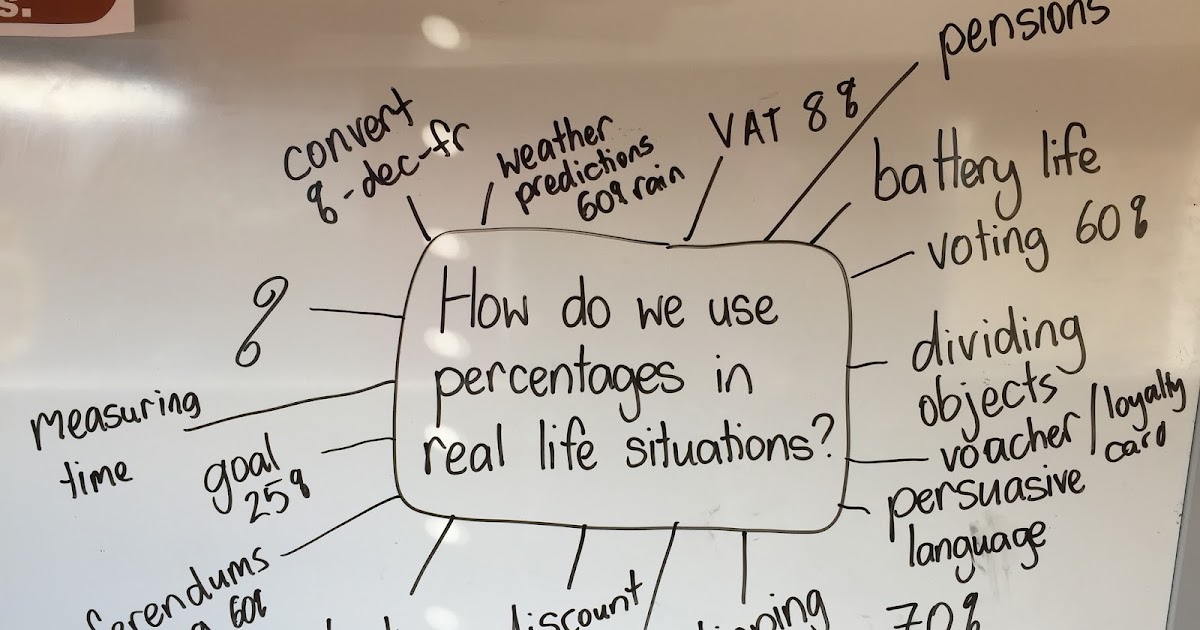 s.
pensions
convert
% - dec - fr
weather
predictions
60% rain
VAT 8%
battery life
voting 60%
%
How do we use
percentages in
real life situations?
dividing
objects
voacher / loyalty
card
measuring
time
goal
25%
persuasive
language
60%
discount
70%